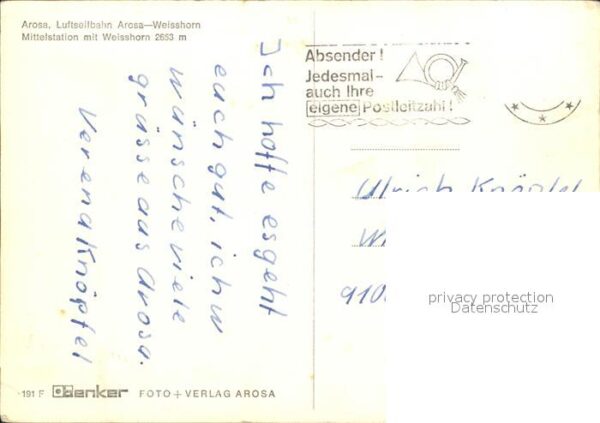 Arosa, Luftseilbahn Arosa—Weisshorn
Mittelstation mit Weisshorn 2653 m
Ich hoffe es geht
euch gut, ich w
wünsche viele
grüsse aus Arosa.
Verena Knöpfel
Absender!
Jedesmal-
auch Ihre
eigene Postleitzahl!
Ulrich Knöpfel
W
910
privacy protection
Datenschutz
191 F denker FOTO+VERLAG AROSA